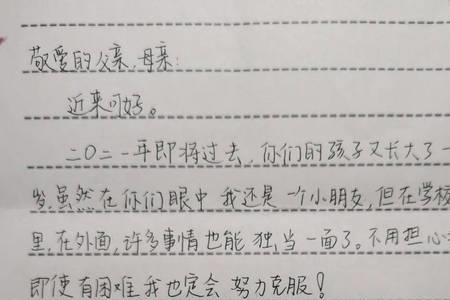 敬爱的父亲、母亲:
近来可好。
二〇二一年即将过去,你们的孩子又长大了一
岁,虽然在你们眼中 我还是一个小朋友,但在学校
里,在外面,许多事情也能 独当一面了。不用担心
即使有困难我也定会 努力克服!